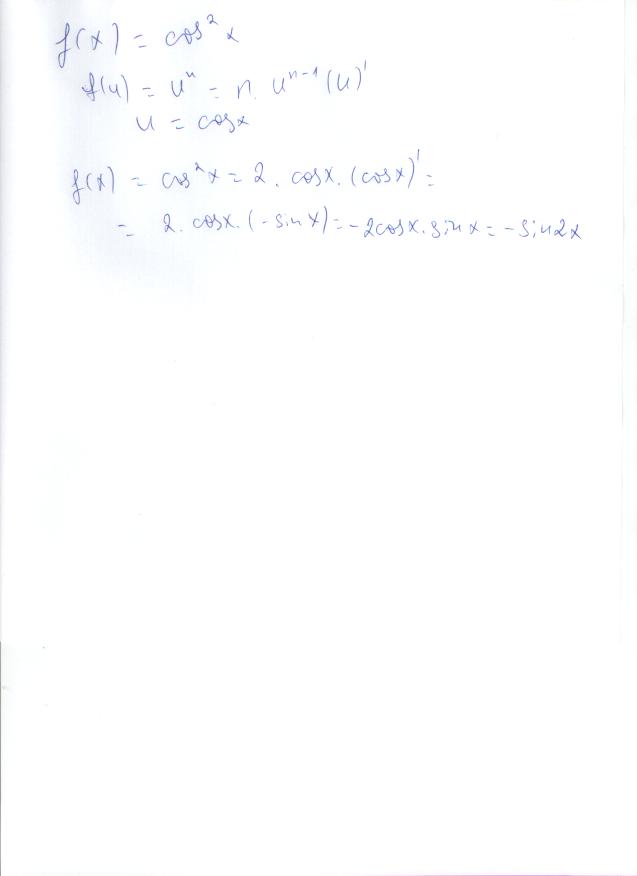 f(x) = cos²x
f(u) = uⁿ = n. uⁿ⁻¹(u)'
u = cosx
f(x) = cos²x = 2 . cosx. (cosx)' =
= 2. cosx. (-sinx) = -2cosx. sinx = -sin2x